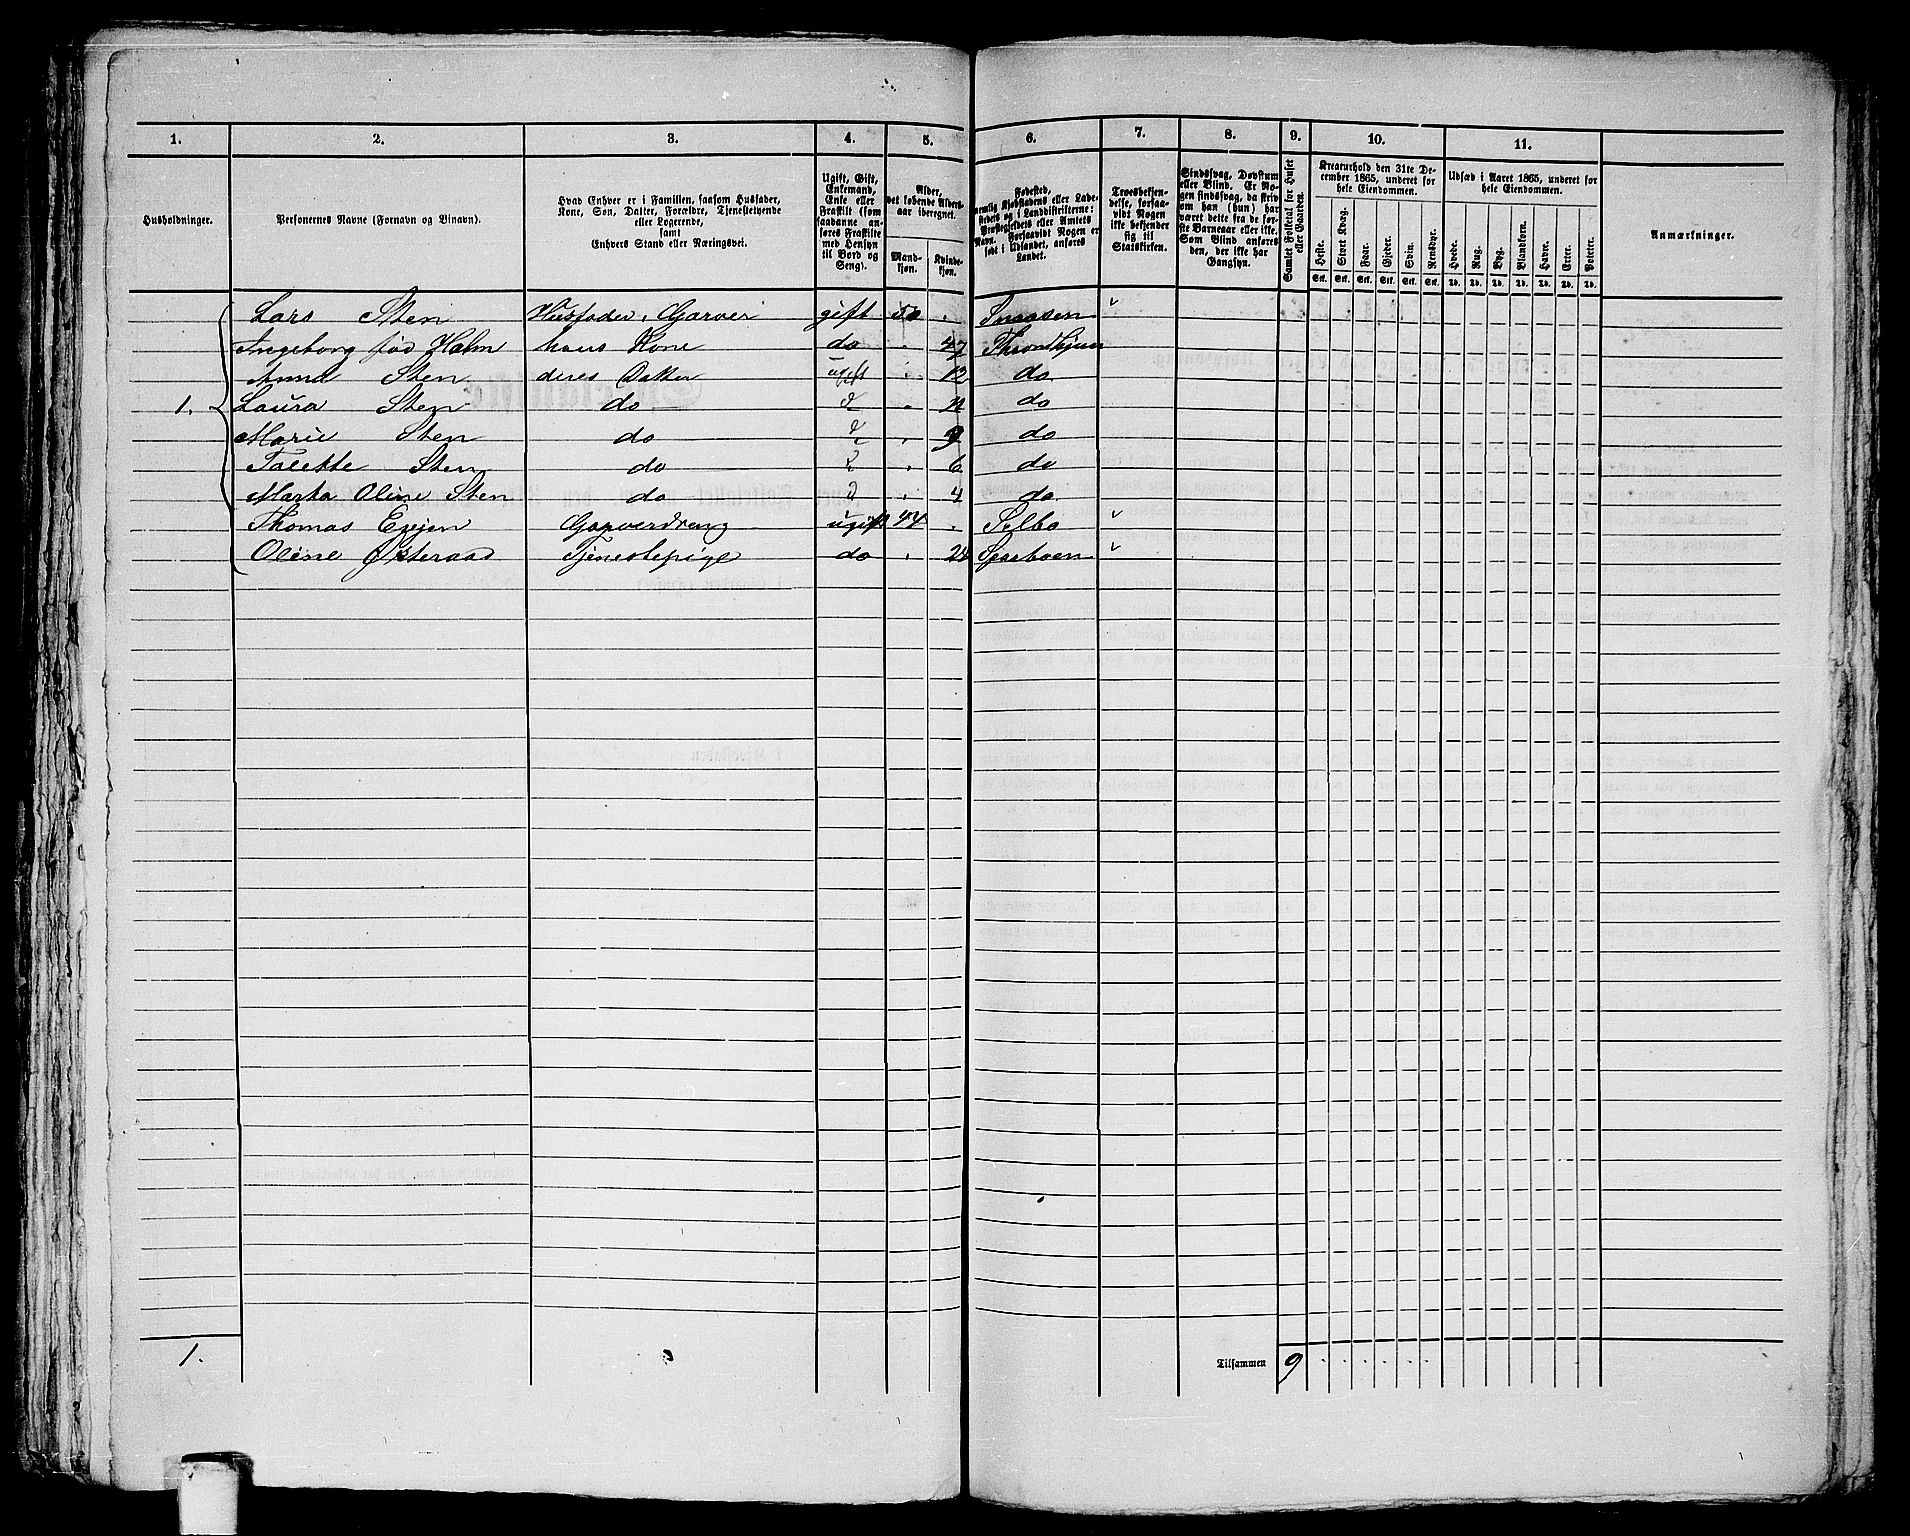 1. 2. 3. 4. 5. 6. 7. 8. 9. 10. 11.
Husholdninger.
Personernes Navne (Fornavn og Tilnavn).
Hvad Enhver er i Familien, saasom Husfader,
Kone, Søn, Datter, Forældre, Tjenestetyende
eller Logerende,
samt
Enhvers Stand eller Næringsvei.
Ugift, Gift,
Enkemand,
Enke eller
Fraskilt (som
saadanne an-
føres Fraskilte
med Hensyn
til Bord og
Seng).
Alder,
det løbende Alders-
aar iberegnet.
Mand-
kjøn.
Kvinde-
kjøn.
Fødested,
nemlig Kjøbstadens eller Lade-
stedets og i Landdistrikterne:
Præstegjeldets eller Amtets
Navn. Forsaavidt Nogen er
født i Udlandet, anføres
Landet.
Troesbekjen-
delse, forsaa-
vidt Nogen
ikke bekjender
sig til
Statskirken.
Sindssvag, Døvstum
eller Blind. Er No-
gen sindssvag, da skriv
om han (hun) har
været dette fra de før-
ste Barneaar eller ikke.
Som Blind anføres
den, der ikke har
Gangsyn.
Samlet Folketal for Huset
eller Gaarden.
Kreaturhold den 31te De-
cember 1865, underet for
hele Eiendommen.
Heste. Stort Kvæg. Faar. Gjeder. Svin. Rensdyr.
Stk. Stk. Stk. Stk. Stk. Stk.
Udsæd i Aaret 1865, underet for
hele Eiendommen.
Hvede. Rug. Byg. Blandkorn. Havre. Erter. Poteter.
Td. Td. Td. Td. Td. Td. Td.
Anmærkninger.
Lars Sten Husfader, Garver gift 50 . Snaasen
Ingeborg fød Holm hans Kone do . 47 Throndhjem
Anna Sten deres Datter ugift . 12 do
1. Laura Sten do . 11 do
Marie Sten do . 9 do
Sten do . 6 do
Marta Oline Sten do . 4 do
Thomas Garverdreng ugift 44 . Selbo
Oline Østeraad Tjenestepige do . 24 Sparboen
1. Tilsammen 9